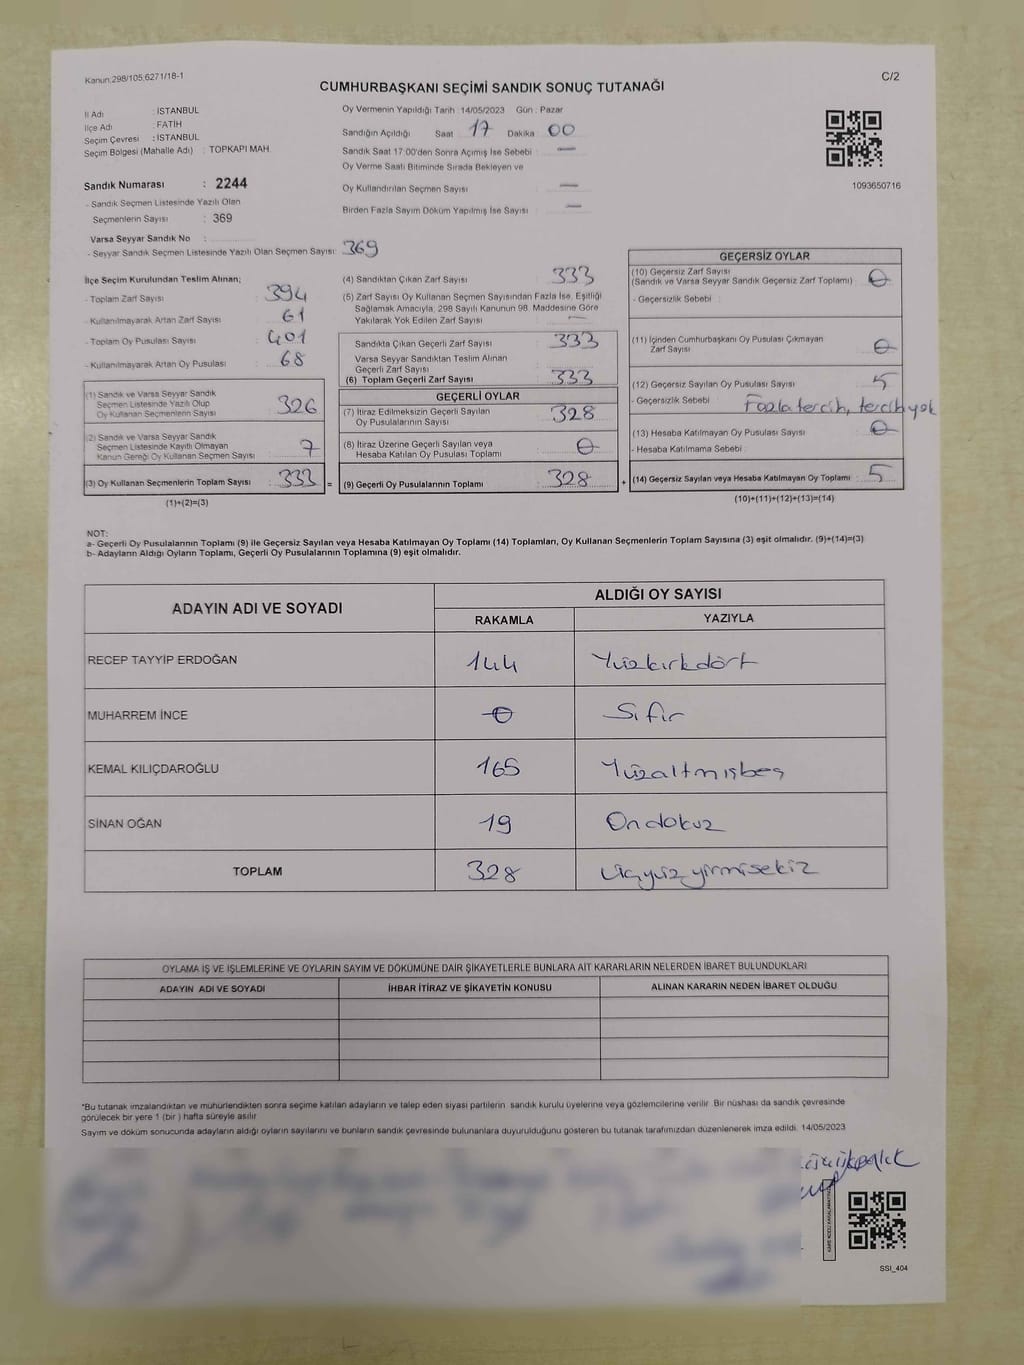 Kanun:298/105,6271/18-1
C/2
CUMHURBAŞKANI SEÇİMİ SANDIK SONUÇ TUTANAĞI
İl Adı : İSTANBUL
İlçe Adı : FATİH
Seçim Çevresi : İSTANBUL
Seçim Bölgesi (Mahalle Adı) : TOPKAPI MAH.
Sandık Numarası : 2244
- Sandık Seçmen Listesinde Yazılı Olan
Seçmenlerin Sayısı : 369
Varsa Seyyar Sandık No :
- Seyyar Sandık Seçmen Listesinde Yazılı Olan Seçmen Sayısı: 369
Oy Vermenin Yapıldığı Tarih : 14/05/2023 Gün : Pazar
Sandığın Açıldığı Saat : 17 Dakika : 00
Sandık Saat 17:00'den Sonra Açımış İse Sebebi : —
Oy Verme Saati Bitiminde Sırada Bekleyen ve
Oy Kullandırılan Seçmen Sayısı : —
Birden Fazla Sayım Döküm Yapılmış İse Sayısı : —
1093650716
İlçe Seçim Kurulundan Teslim Alınan;
- Toplam Zarf Sayısı : 394
- Kullanılmayarak Artan Zarf Sayısı : 61
- Toplam Oy Pusulası Sayısı : 401
- Kullanılmayarak Artan Oy Pusulası : 68
(1) Sandık ve Varsa Seyyar Sandık
Seçmen Listesinde Yazılı Olup
Oy Kullanan Seçmenlerin Sayısı : 326
(2) Sandık ve Varsa Seyyar Sandık
Seçmen Listesinde Kayıtlı Olmayan
Kanun Gereği Oy Kullanan Seçmen Sayısı : 7
(3) Oy Kullanan Seçmenlerin Toplam Sayısı : 333 =
(1)+(2)=(3)
(4) Sandıktan Çıkan Zarf Sayısı : 333
(5) Zarf Sayısı Oy Kullanan Seçmen Sayısından Fazla İse, Eşitliği
Sağlamak Amacıyla, 298 Sayılı Kanunun 98. Maddesine Göre
Yakılarak Yok Edilen Zarf Sayısı : —
Sandıkta Çıkan Geçerli Zarf Sayısı : 333
Varsa Seyyar Sandıktan Teslim Alınan
Geçerli Zarf Sayısı :
(6) Toplam Geçerli Zarf Sayısı : 333
GEÇERLİ OYLAR
(7) İtiraz Edilmeksizin Geçerli Sayılan
Oy Pusulalarının Sayısı : 328
(8) İtiraz Üzerine Geçerli Sayılan veya
Hesaba Katılan Oy Pusulası Toplamı : 0
(9) Geçerli Oy Pusulalarının Toplamı : 328 +
GEÇERSİZ OYLAR
(10) Geçersiz Zarf Sayısı
(Sandık ve Varsa Seyyar Sandık Geçersiz Zarf Toplamı) : 0
- Geçersizlik Sebebi :
(11) İçinden Cumhurbaşkanı Oy Pusulası Çıkmayan
Zarf Sayısı : 0
(12) Geçersiz Sayılan Oy Pusulası Sayısı : 5
- Geçersizlik Sebebi : Fazla tercih, tercih yok
(13) Hesaba Katılmayan Oy Pusulası Sayısı : 0
- Hesaba Katılmama Sebebi :
(14) Geçersiz Sayılan veya Hesaba Katılmayan Oy Toplamı : 5
(10)+(11)+(12)+(13)=(14)
NOT:
a- Geçerli Oy Pusulalarının Toplamı (9) ile Geçersiz Sayılan veya Hesaba Katılmayan Oy Toplamı (14) Toplamları, Oy Kullanan Seçmenlerin Toplam Sayısına (3) eşit olmalıdır. (9)+(14)=(3)
b- Adayların Aldığı Oyların Toplamı, Geçerli Oy Pusulalarının Toplamına (9) eşit olmalıdır.
ADAYIN ADI VE SOYADI
ALDIĞI OY SAYISI
RAKAMLA YAZIYLA
RECEP TAYYİP ERDOĞAN 144 Yüzkırkdört
MUHARREM İNCE 0 Sıfır
KEMAL KILIÇDAROĞLU 165 Yüzaltmışbeş
SİNAN OĞAN 19 Ondokuz
TOPLAM 328 Üçyüzyirmisekiz
OYLAMA İŞ VE İŞLEMLERİNE VE OYLARIN SAYIM VE DÖKÜMÜNE DAİR ŞİKAYETLERLE BUNLARA AİT KARARLARIN NELERDEN İBARET BULUNDUKLARI
ADAYIN ADI VE SOYADI İHBAR İTİRAZ VE ŞİKAYETİN KONUSU ALINAN KARARIN NEDEN İBARET OLDUĞU
*Bu tutanak imzalandıktan ve mühürlendikten sonra seçime katılan adayların ve talep eden siyasi partilerin sandık kurulu üyelerine veya gözlemcilerine verilir. Bir nüshası da sandık çevresinde
görülecek bir yere 1 (bir ) hafta süreyle asılır.
Sayım ve döküm sonucunda adayların aldığı oyların sayılarını ve bunların sandık çevresinde bulunanlara duyurulduğunu gösteren bu tutanak tarafımızdan düzenlenerek imza edildi. 14/05/2023
SSI_404